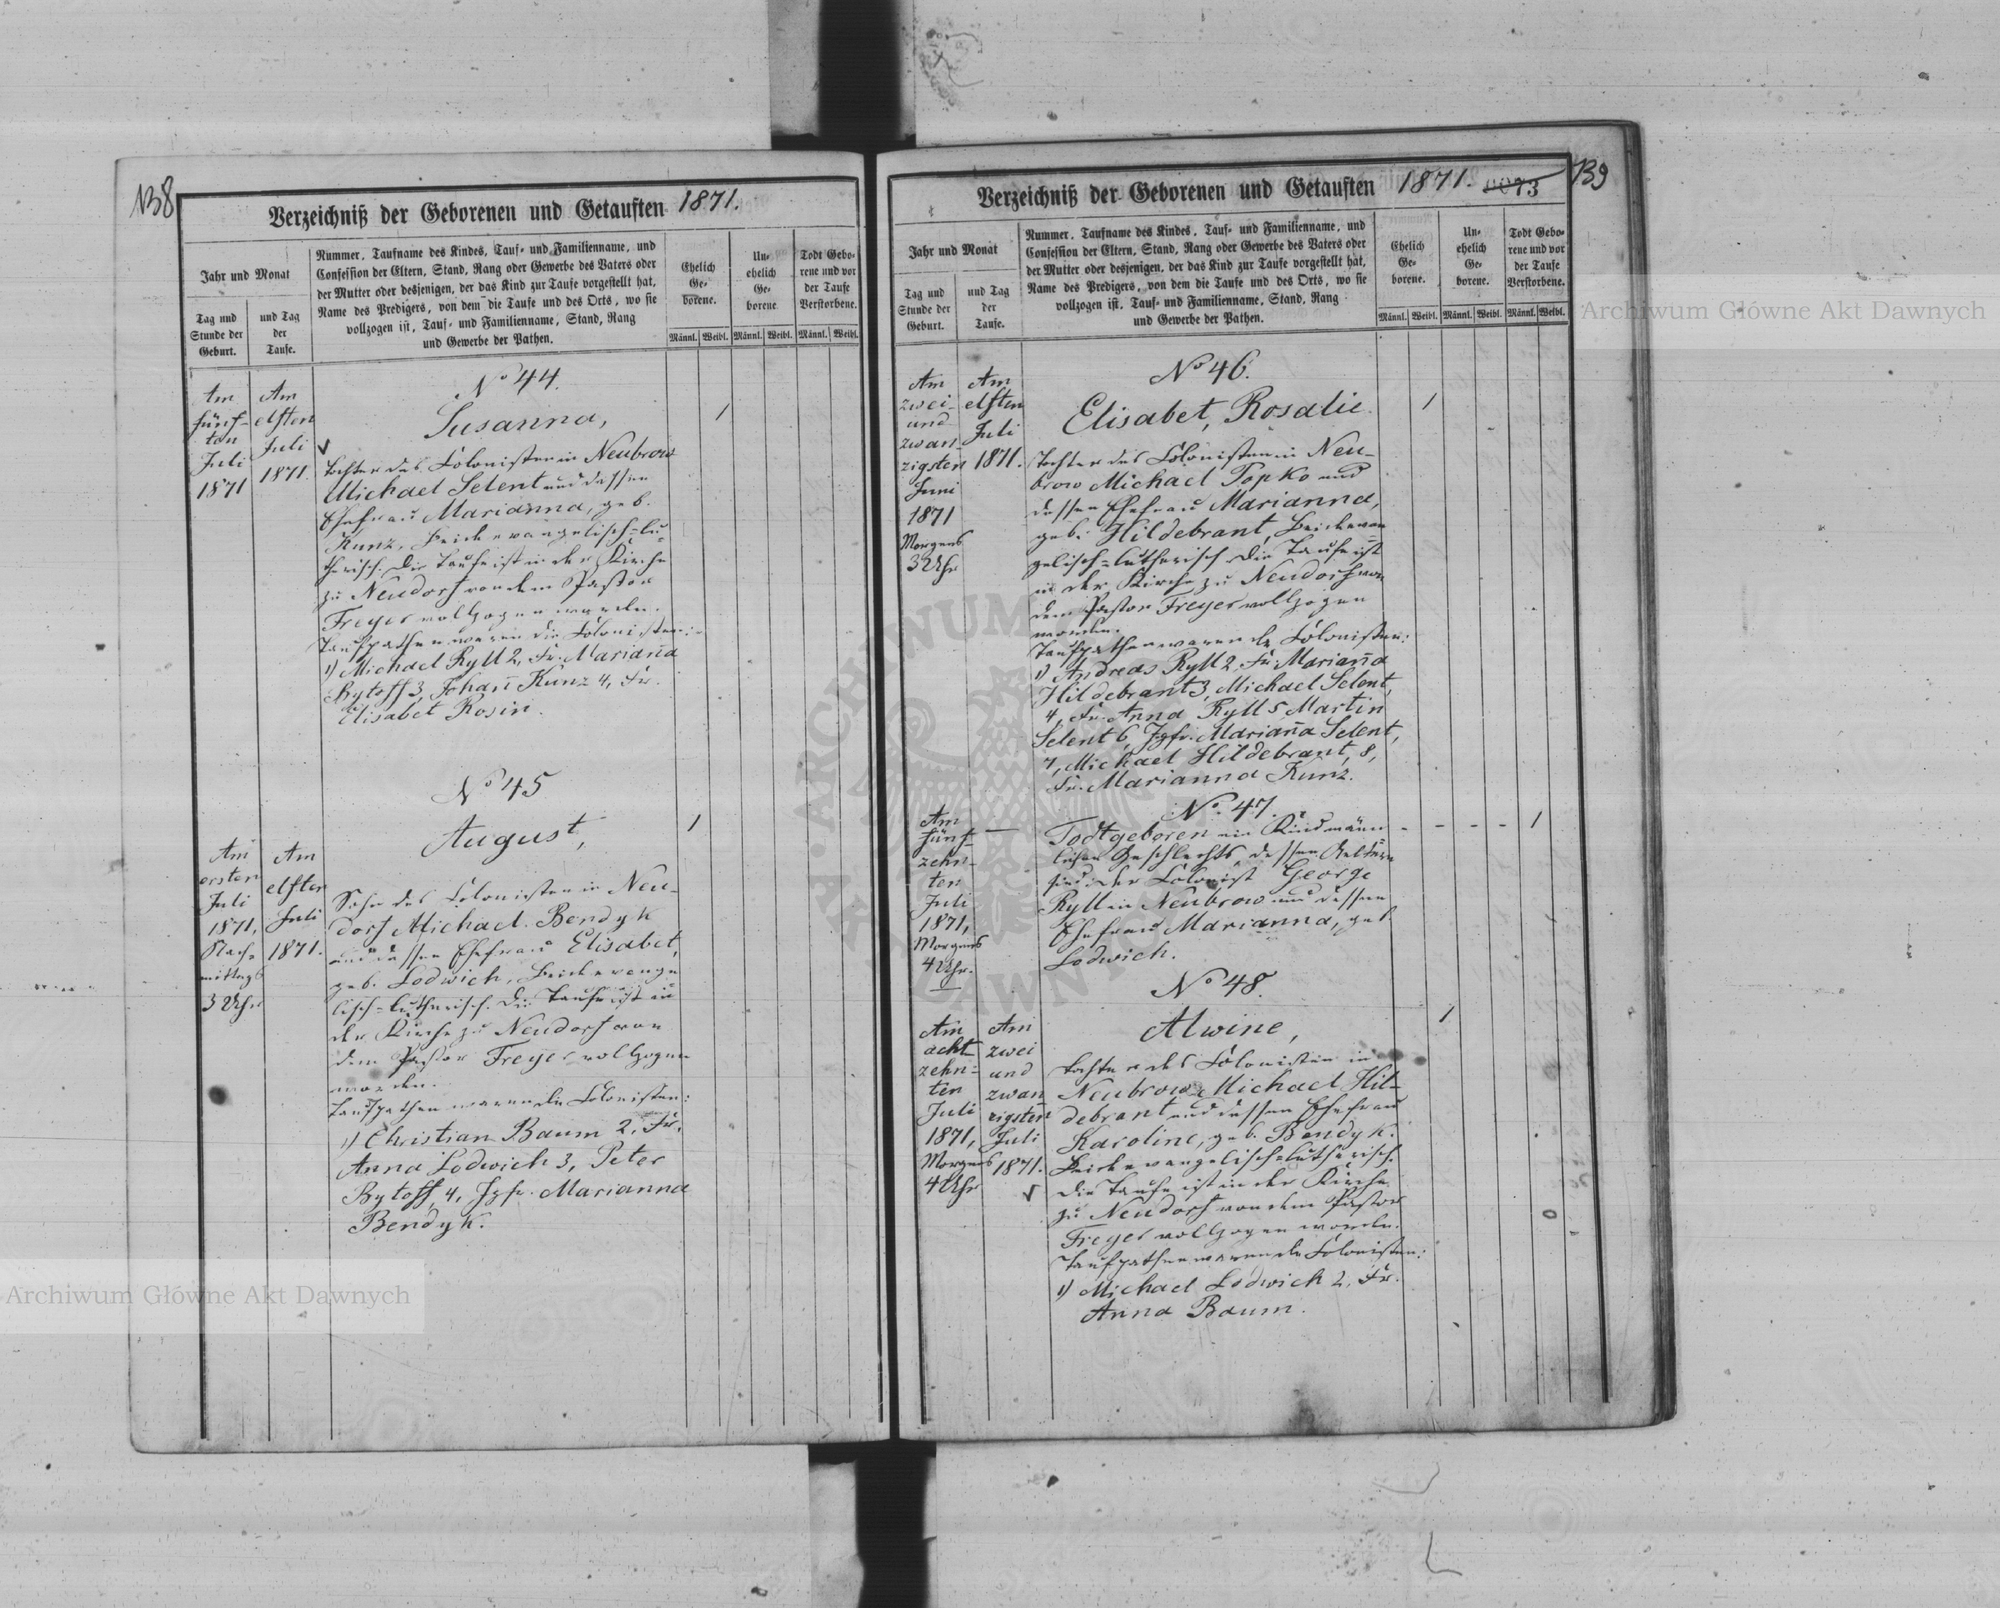 138
Verzeichniß der Geborenen und Getauften 1871.
Jahr und Monat
Tag und
Stunde der
Geburt.
und Tag
der
Taufe.
Nummer, Taufname des Kindes, Tauf- und Familienname, und
Confession der Eltern, Stand, Rang oder Gewerbe des Vaters oder
der Mutter oder desjenigen, der das Kind zur Taufe vorgestellt hat,
Name des Predigers, von dem die Taufe und des Orts, wo sie
vollzogen ist, Tauf- und Familienname, Stand, Rang
und Gewerbe der Pathen.
Ehelich
Ge-
borene.
Un-
ehelich
Ge-
borene
Todt Gebo-
rene und vor
der Taufe
Verstorbene.
Männl. Weibl. Männl. Weibl. Männl. Weibl.
Am
fünf-
ten
Juli
1871
Am
elften
Juli
1871.
No 44.
Susanna,
1
Tochter des Colonisten in Neubrow
Michael Selent und dessen
Ehefrau Marianna, geb.
Kunz, beide evangelisch-lu-
therisch. Die Taufe ist in der Kirche
zu Neudorf von dem Pastor
Freyer vollzogen worden.
Taufpathen waren die Colonisten:
1) Michael Ryll 2, Fr. Mariana
Rytoff 3, Johan Kunz 4, Fr.
Elisabet Rosin.
Am
ersten
Juli
1871,
Nach-
mittags
3 Uhr
Am
elften
Juli
1871.
No 45
August,
1
Sohn des Colonisten in Neu-
dorf Michael Bendyk
und dessen Ehefrau Elisabet,
geb. Lodwich, beide evange-
lisch-lutherisch. Die Taufe ist in
der Kirche zu Neudorf von
dem Pastor Freyer vollzogen
worden.
Taufpathen waren die Colonisten:
1) Christian Baum 2, Fr.
Anna Lodwich 3, Peter
Rytoff, 4, Jgfr. Marianna
Bendyk.
139
Verzeichniß der Geborenen und Getauften 1871.
73
Jahr und Monat
Tag und
Stunde der
Geburt.
und Tag
der
Taufe.
Nummer, Taufname des Kindes, Tauf- und Familienname, und
Confession der Eltern, Stand, Rang oder Gewerbe des Vaters oder
der Mutter oder desjenigen, der das Kind zur Taufe vorgestellt hat,
Name des Predigers, von dem die Taufe und des Orts, wo sie
vollzogen ist, Tauf- und Familienname, Stand, Rang
und Gewerbe der Pathen.
Ehelich
Ge-
borene.
Un-
ehelich
Ge-
borene.
Todt Gebo-
rene und vor
der Taufe
Verstorbene.
Männl. Weibl. Männl. Weibl. Männl. Weibl.
Am
zwei-
und
zwan-
zigsten
Juni
1871
Morgens
3 Uhr
Am
elften
Juli
1871.
No 46.
Elisabet, Rosalie.
1
Tochter des Colonisten in Neu-
brow Michael Popko und
dessen Ehefrau Marianna,
geb. Hildebrant, beide evan
gelisch-lutherisch. Die Taufe ist
in der Kirche zu Neudorf von
dem Pastor Freyer vollzogen
worden.
Taufpathen waren die Colonisten:
1) Andreas Ryll 2, Fr. Mariana
Hildebrant 3, Michael Selent,
4, Fr. Anna Ryll 5 Martin
Selent 6, Jgfr. Mariana Selent,
7, Michael Hildebrant, 8,
Fr. Marianna Kunz.
Am
fünf-
zehn-
ten
Juli
1871,
Morgens
4 Uhr.
—
No 47.
Todtgeboren ein Kind männ-
lichen Geschlechts, dessen Aeltern
sind: der Colonist George
Ryll in Neubrow und dessen
Ehefrau Marianna, geb
Lodwich.
- - - - 1
Am
acht-
zehn-
ten
Juli
1871,
Morgens
4 Uhr
Am
zwei
und
zwan
zigsten
Juli
1871.
No 48.
Alwine,
1
Tochter des Colonisten in
Neubrow Michael Hil-
debrant und dessen Ehefrau
Karoline, geb. Bendyk.
beide evangelisch-lutherisch.
Die Taufe ist in der Kirche
zu Neudorf von dem Pastor
Freyer vollzogen worden.
Taufpathen waren die Colonisten:
1) Michael Lodwich 2, Fr.
Anna Baum.
Archiwum Główne Akt Dawnych
Archiwum Główne Akt Dawnych